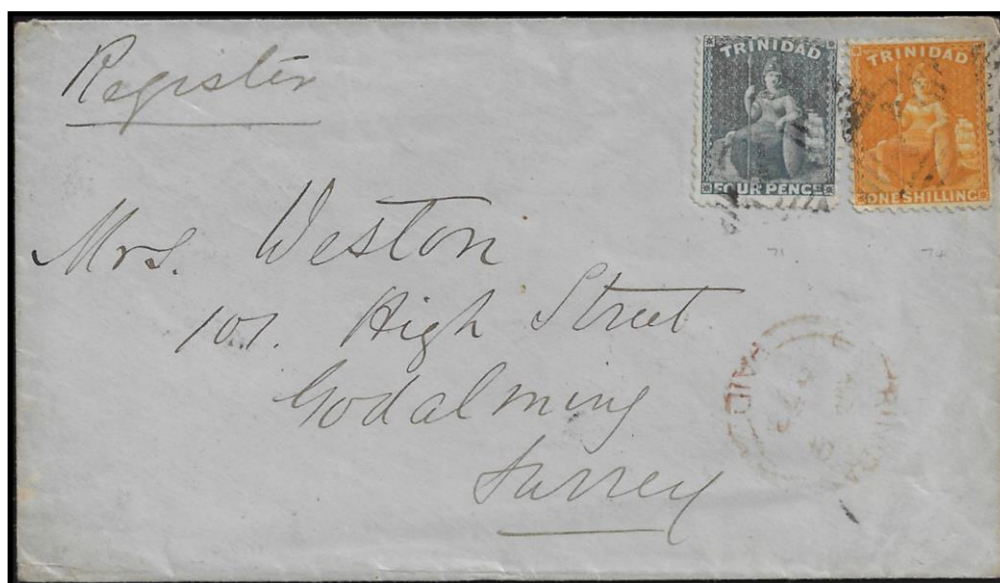 Register
TRINIDAD
FOUR PENCE
TRINIDAD
ONE SHILLING
Mrs. Weston
101. High Street
Godalming
Surrey
71.
74
PAID
TRINIDAD